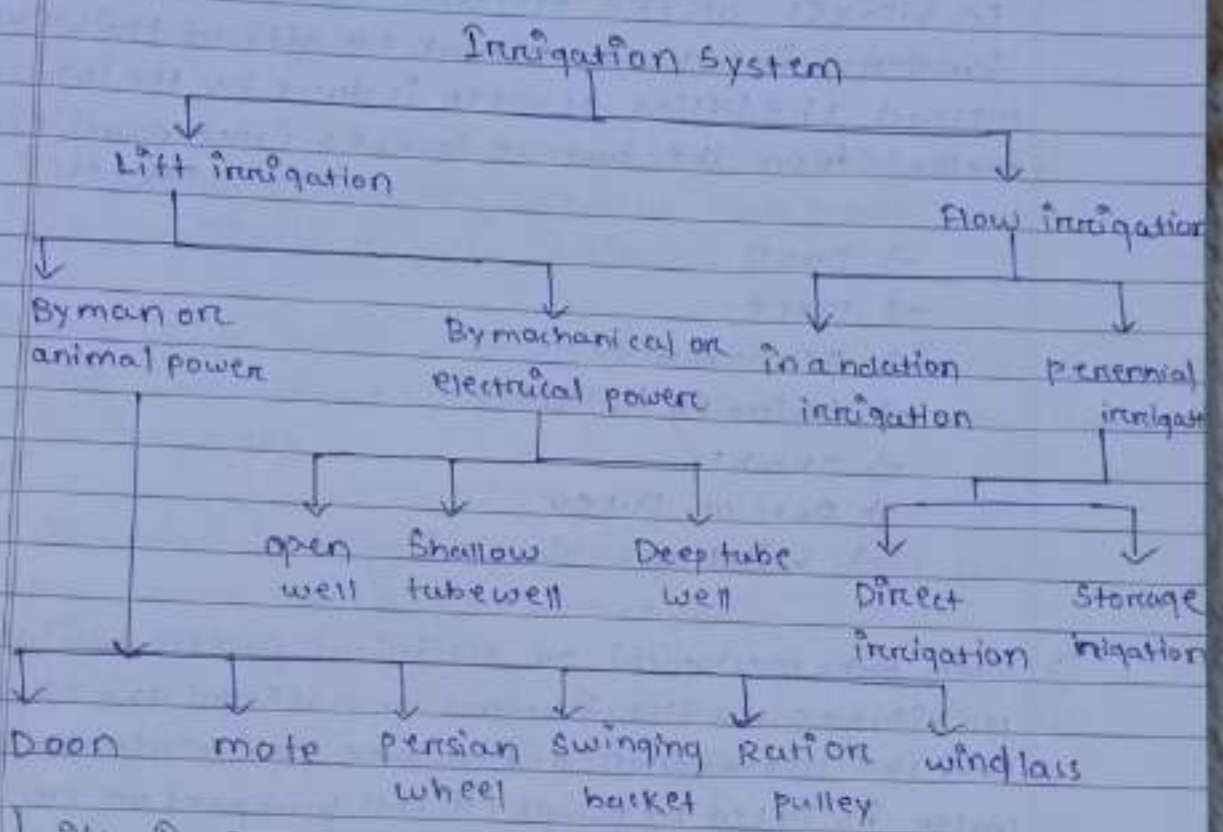 Irrigation System
Lift irrigation
Flow irrigation
By man or
animal power
By machanical or
electrical power
inandation
irrigation
perennial
irrigat
open
well
Shallow
tubewell
Deep tube
well
Direct
irrigation
Storage
irigation
Doon
mote
persian
wheel
swinging
basket
Rati or
pulley
windlass